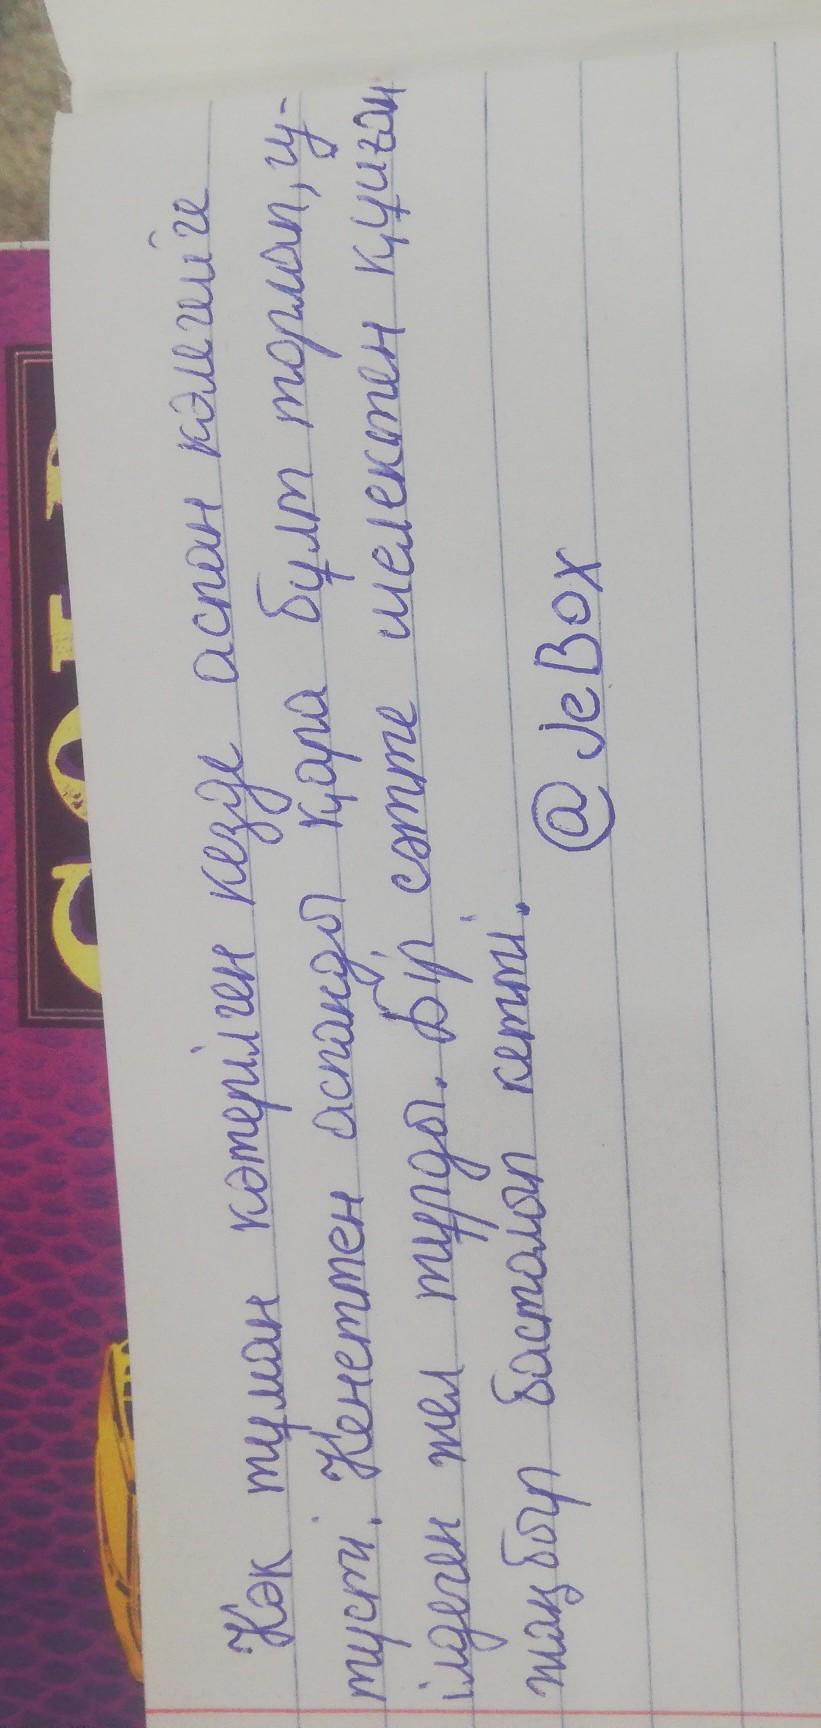 Көк тұман көтерілген кезде аспан көлегейге
түсті. Кенеттен аспанды қара бұлт торлап, гу-
ілдеген жел тұрды. Бір сәтте шелектен құйған
жаңбыр басталап кетті.
@JeBox
GOLD